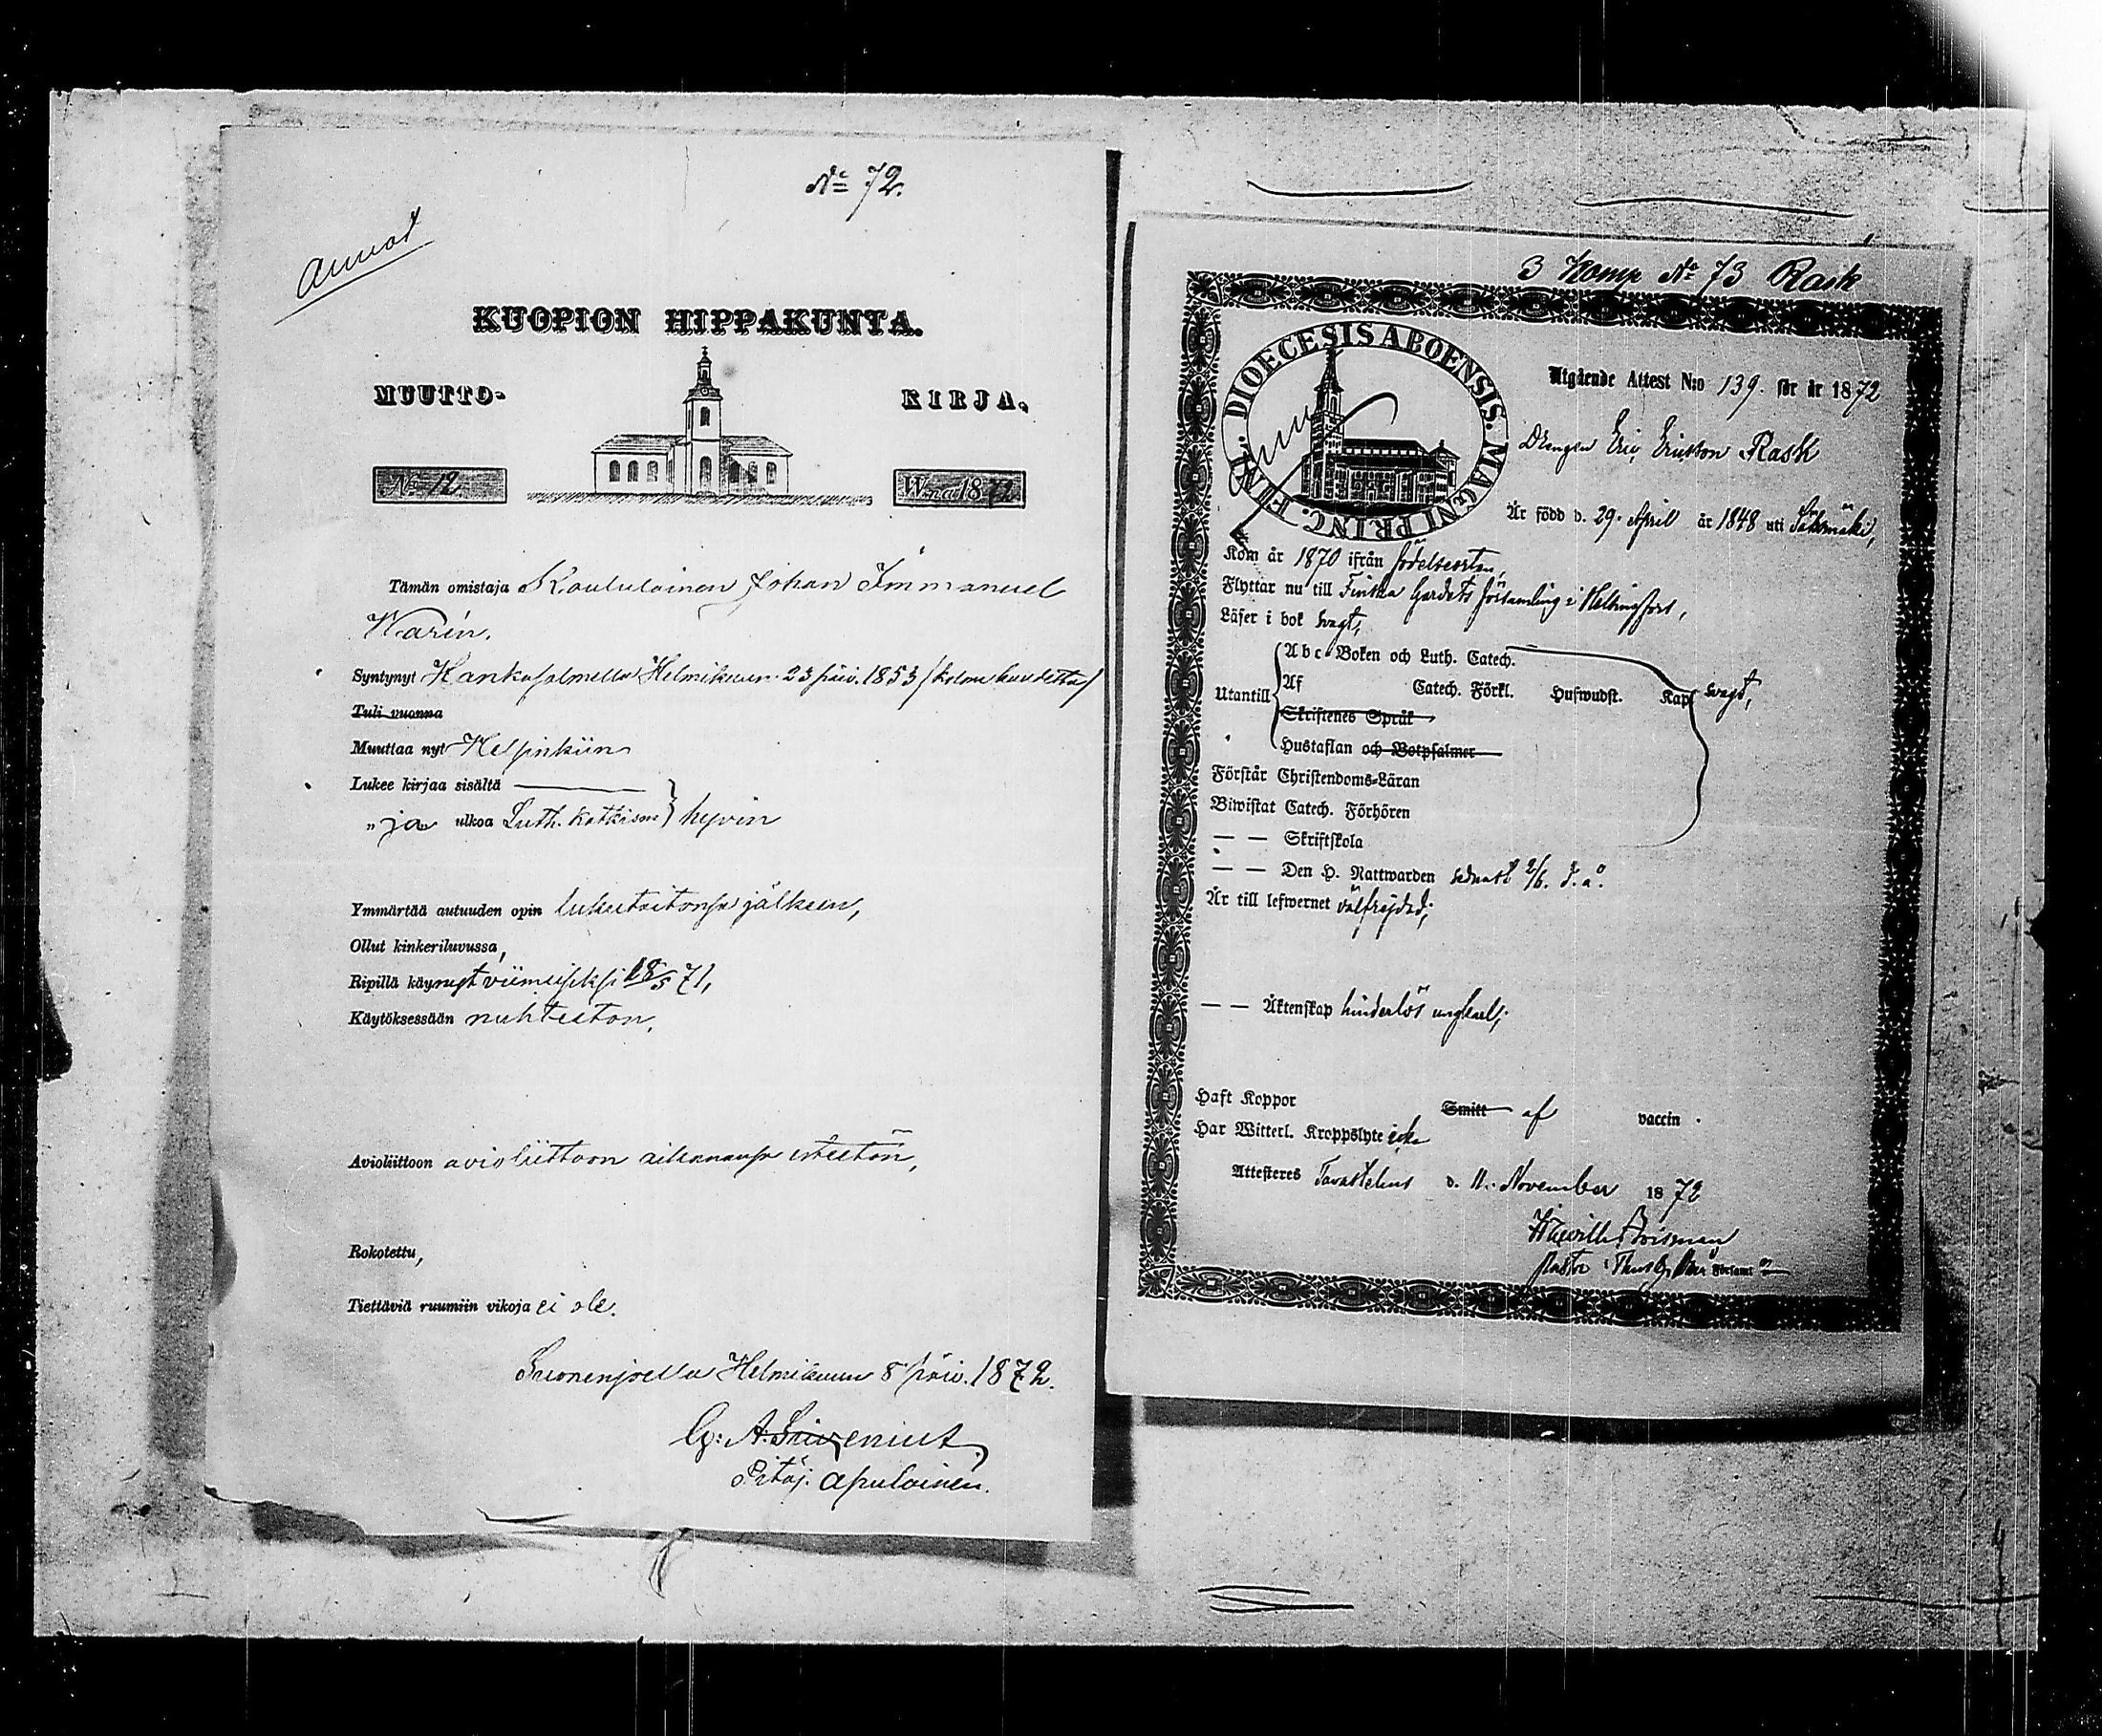 No 72.
Annot
KUOPION HIPPAKUNTA.
MUUTTO- KIRJA.
No 12 W:na 1872
Tämän omistaja Koululainen Johan Immanuel
Warén.
Syntynyt Hankasalmella Helmikuun 23 päiv. 1853 /kolme kuudetta/
Tuli vuonna
Muuttaa nyt Helsinkiin
Lukee kirjaa sisältä
„ ja „ ulkoa Luth. Katkism hyvin
Ymmärtää autuuden opin lukutaitonsa jälkeen,
Ollut kinkeriluvussa,
Ripillä käynyt viimeiseksi 18/5 71,
Käytöksessään nuhteeton,
Avioliittoon avioliittoon aikanansa esteetön,
Rokotettu,
Tiettäviä ruumiin vikoja ei ole.
Suonenjoella Helmikuun 8 päiv. 1872.
G: A.
Pitäj. apulainen.
3 Komp No 73 Rask
DIOECESIS ABOENSIS. MAGNI PRINC. FINL.
Utgående Attest N:o 139. för år 1872
Drengen Eric Ericsson Rask
Är född d. 29. April år 1848 uti Sääksmäki,
Kom år 1870 ifrån födelseorten,
Flyttar nu till Finska Gardets församling i Helsingfors,
Läser i bok svagt,
Utantill
Abc-Boken och Luth. Catech.
Af Catech. Förkl. Hufwudst. Kap svagt,
Skriftenes Språk
Hustaflan och Botpsalmer
Förstår Christendoms-Läran
Biwistat Catech. Förhören
— — Skriftskola
— — Den H. Nattwarden senast 2/6. d. å.
Är till lefwernet välfrejdad;
— — Äktenskap hinderlös ungkarl;
Haft Koppor Smitt af vaccin.
Har Witterl. Kroppslyte icke
Attesteras Tavastehus d. 11. November 1872